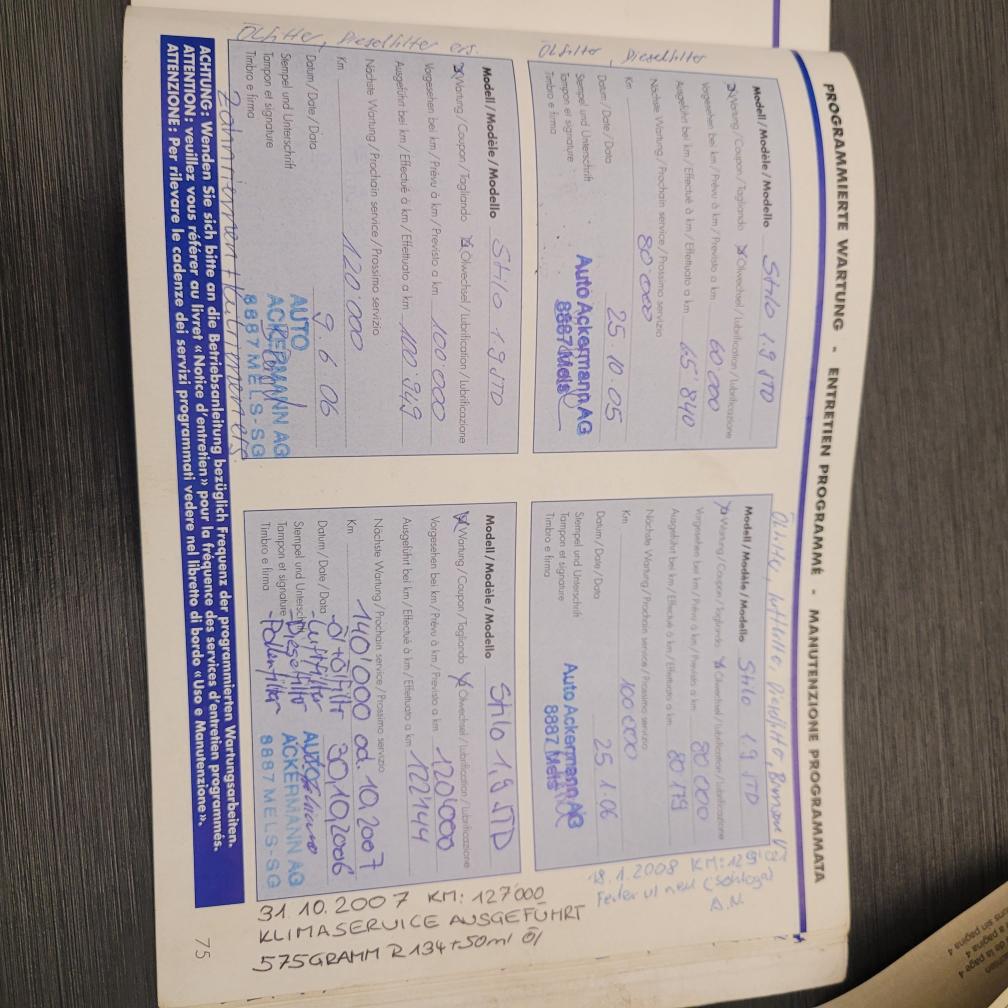 PROGRAMMIERTE WARTUNG - ENTRETIEN PROGRAMMÉ - MANUTENZIONE PROGRAMMATA
Ölfilter, Dieselfilter
Modell/Modèle/Modello Stilo 1.9 JTD
Wartung/Coupon/Tagliando Ölwechsel/Lubrification/Lubrificazione
Vorgesehen bei km/Prévu à km/Previsto a km 60'000
Ausgeführt bei km/Effectué à km/Effettuato a km 65'840
Nächste Wartung/Prochain service/Prossimo servizio
Km 80'000
Datum/Date/Data 25.10.05
Stempel und Unterschrift
Tampon et signature
Timbro e firma
Auto Ackermann AG
8887 Mels
Modell/Modèle/Modello Stilo 1.9 JTD
Wartung/Coupon/Tagliando Ölwechsel/Lubrification/Lubrificazione
Vorgesehen bei km/Prévu à km/Previsto a km 80'000
Ausgeführt bei km/Effectué à km/Effettuato a km 80'179
Nächste Wartung/Prochain service/Prossimo servizio
Km 100'000
Datum/Date/Data 25.1.06
Stempel und Unterschrift
Tampon et signature
Timbro e firma
Auto Ackermann AG
8887 Mels
18.1.2008 KM:
A.N.
Ölfilter, Dieselfilter ers.
Modell/Modèle/Modello Stilo 1.9 JTD
Wartung/Coupon/Tagliando Ölwechsel/Lubrification/Lubrificazione
Vorgesehen bei km/Prévu à km/Previsto a km 100'000
Ausgeführt bei km/Effectué à km/Effettuato a km 100'949
Nächste Wartung/Prochain service/Prossimo servizio
Km 120'000
Datum/Date/Data 9.6.06
Stempel und Unterschrift
Tampon et signature
Timbro e firma
AUTO
ACKERMANN AG
8887 MELS-SG
Zahnriemen
Modell/Modèle/Modello Stilo 1,9 JTD
Wartung/Coupon/Tagliando Ölwechsel/Lubrification/Lubrificazione
Vorgesehen bei km/Prévu à km/Previsto a km 120'000
Ausgeführt bei km/Effectué à km/Effettuato a km 122'444
Nächste Wartung/Prochain service/Prossimo servizio
Km 140'000 od. 10,2007
Datum/Date/Data 30,10,2006
Stempel und Unterschrift
Tampon et signature
Timbro e firma
-Ö+Ölfiltr
-Luftfilter
-Dieselfiltr
-Pollenfilter
AUTO
ACKERMANN AG
8887 MELS-SG
31.10.2007 KM: 127'000
KLIMASERVICE AUSGEFÜHRT
575GRAMM R134+50ml Öl
ACHTUNG: Wenden Sie sich bitte an die Betriebsanleitung bezüglich Frequenz der programmierten Wartungsarbeiten.
ATTENTION: veuillez vous référer au livret «Notice d'entretien» pour la fréquence des services d'entretien programmés.
ATTENZIONE: Per rilevare le cadenze dei servizi programmati vedere nel libretto di bordo «Uso e Manutenzione».
75